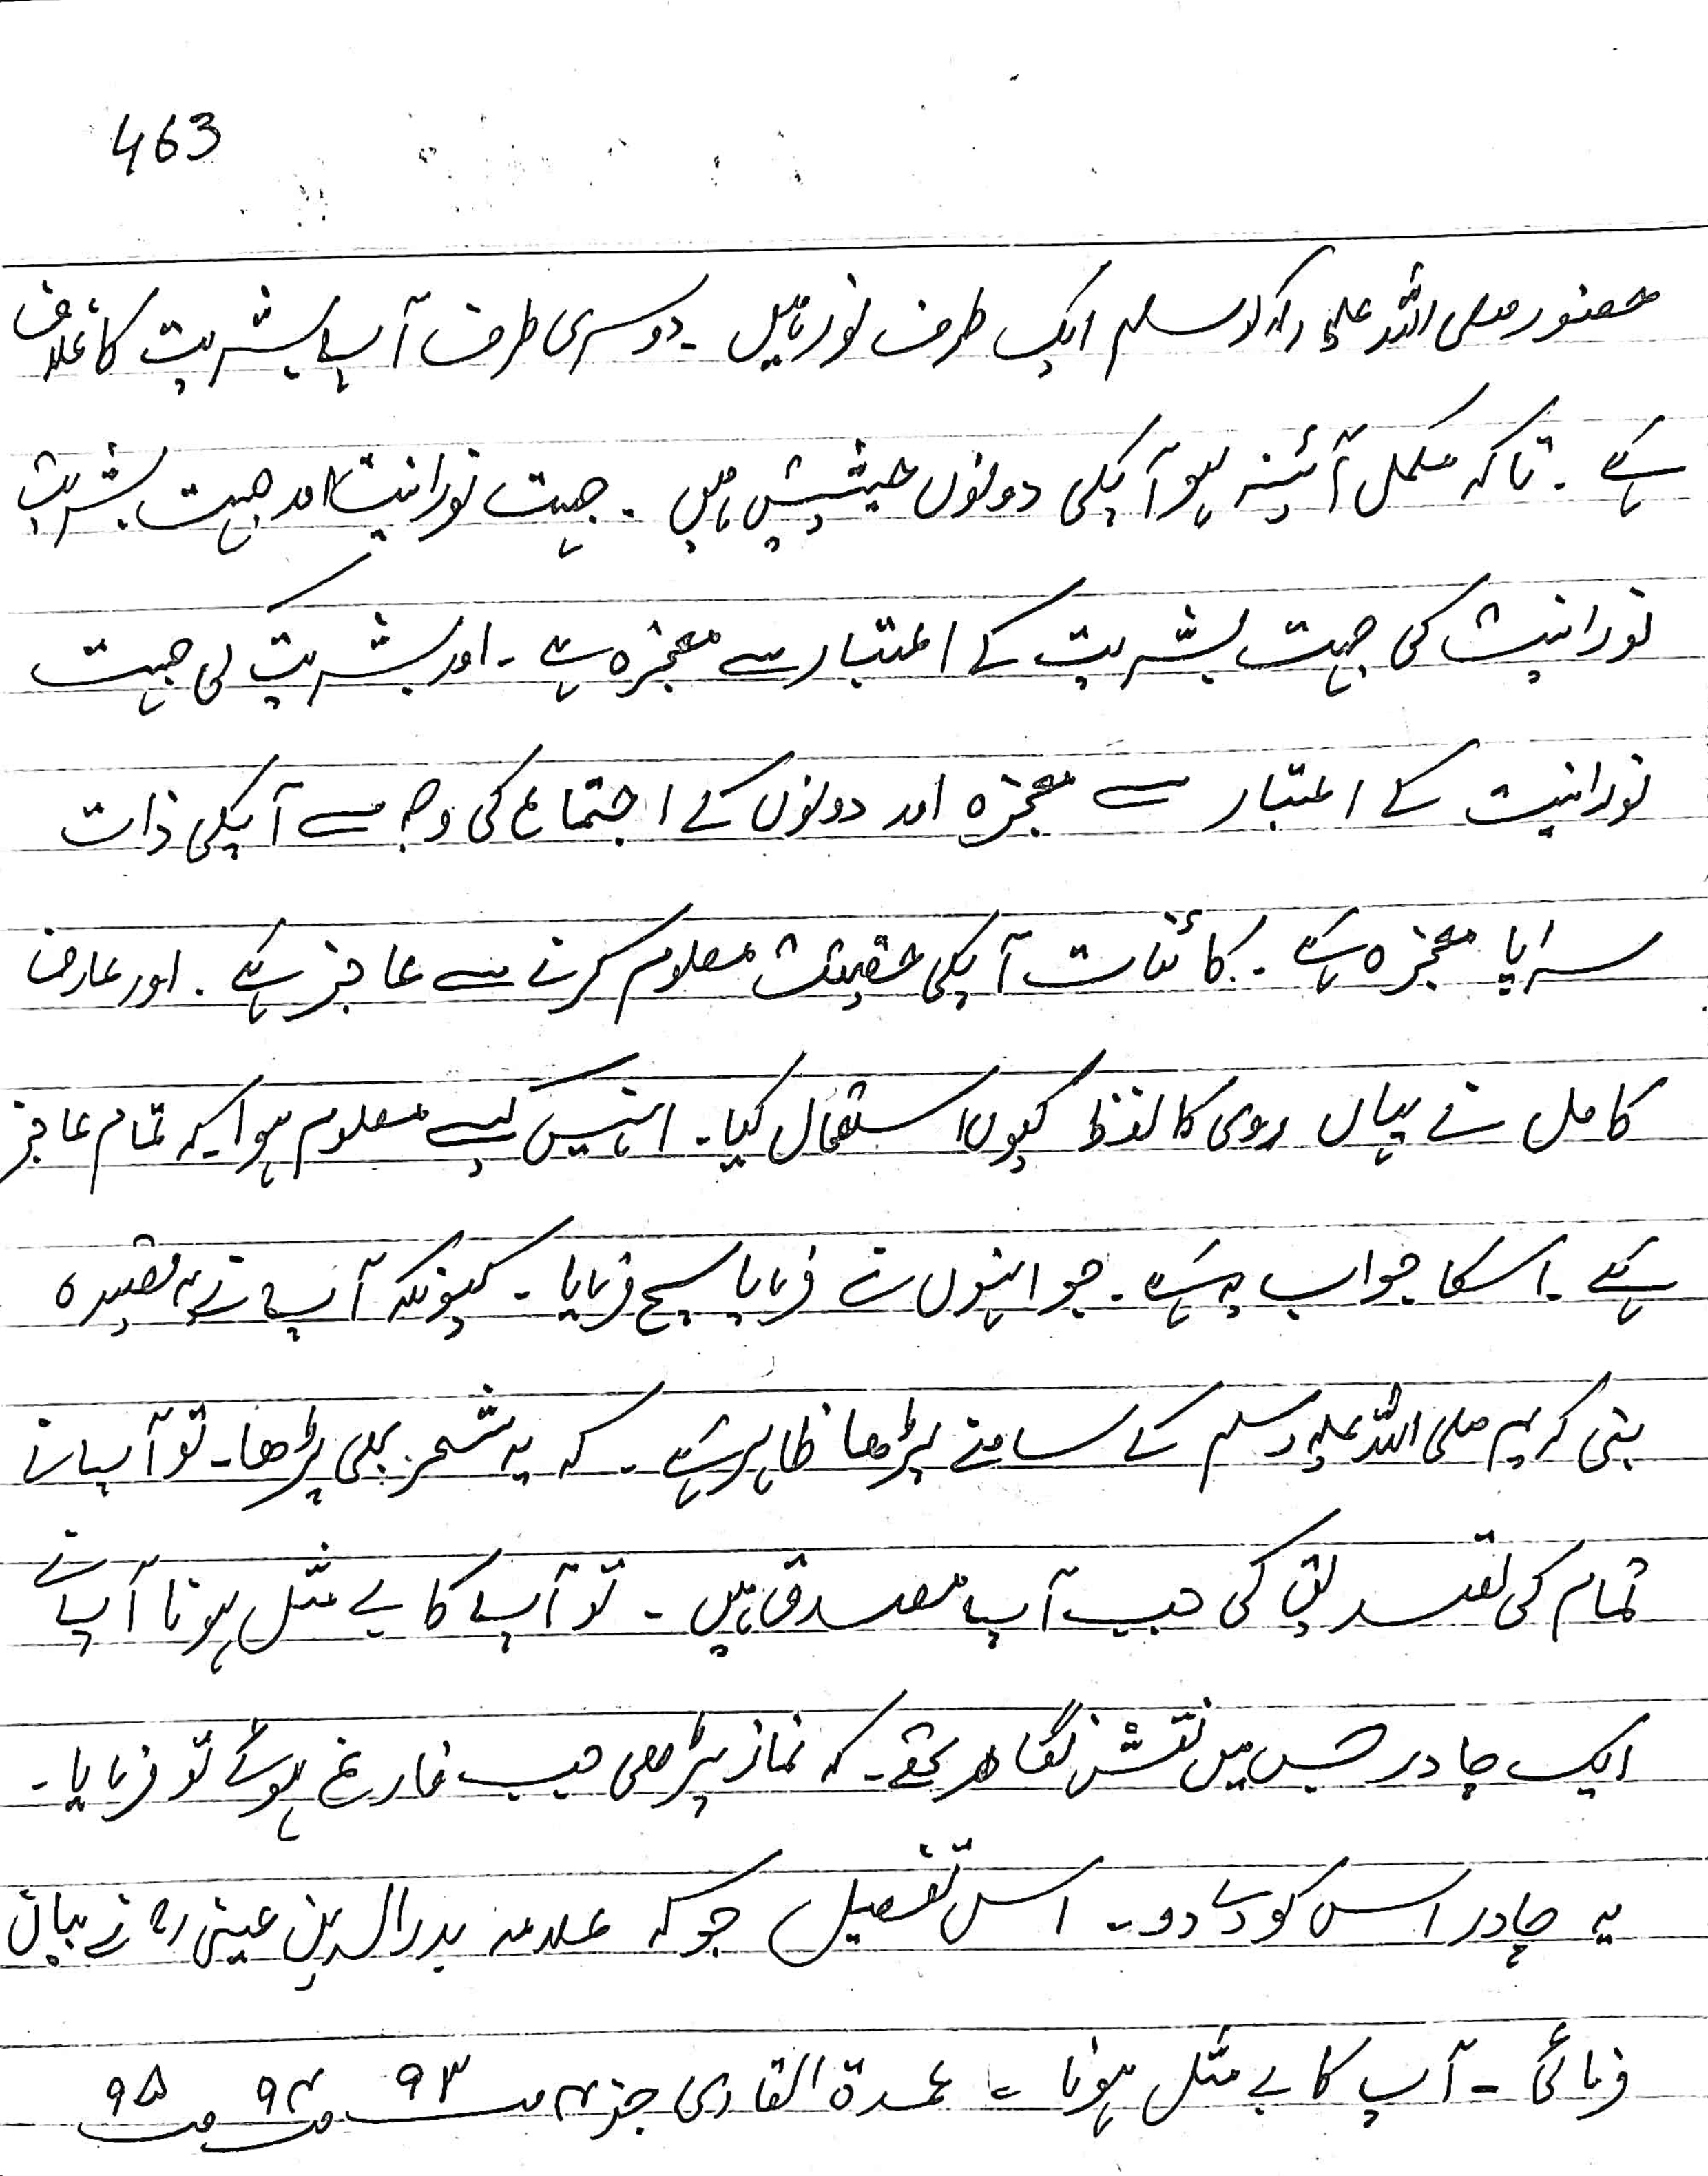 463
حضور صلی اللہ علیہ وآلہ وسلم ایک طرف نور ہیں ۔ دوسری طرف آپ بشریت کا غلاف
ہے ۔ تاکہ مکمل آئینہ ہو آپکی دونوں حیثیتیں ہیں ۔ جہت نورانیت اور جہت بشریت
نورانیت کی جہت بشریت کے اعتبار سے معجزہ ہے ۔ اور بشریت کی جہت
نورانیت کے اعتبار سے معجزہ اور دونوں کے اجتماع کی وجہ سے آپکی ذات
سراپا معجزہ ہے ۔ کائنات آپکی حقیقت معلوم کرنے سے عاجز ہے ۔ اور عارف
کامل نے یہاں روی کا لفظ کیوں استعمال کیا ۔ انہیں کیسے معلوم ہوا کہ تمام عاجز
ہے ۔ اسکا جواب یہ ہے ۔ جو انہوں نے فرمایا سچ فرمایا ۔ کیونکہ آپ نے یہ قصیدہ
نبی کریم صلی اللہ علیہ وسلم کے سامنے پڑھا ظاہر ہے ۔ کہ یہ شعر بھی پڑھا ۔ تو آپ نے
تمام کی تصدیق کی جب آپ مصدق ہیں ۔ تو آپ کا بے مثل ہونا آپ نے
ایک چادر جس میں نقش نگار تھے ۔ کہ نماز پڑھی جب فارغ ہوئے تو فرمایا ۔
یہ چادر اس کو دے دو ۔ اس تفصیل جو کہ علامہ بدرالدین عینی رح نے بیان
فرمائی ۔ آپ کا بے مثل ہونا ۔ عمدۃ القاری جز ۴ ص ۹۳ ص ۹۴ ص ۹۵